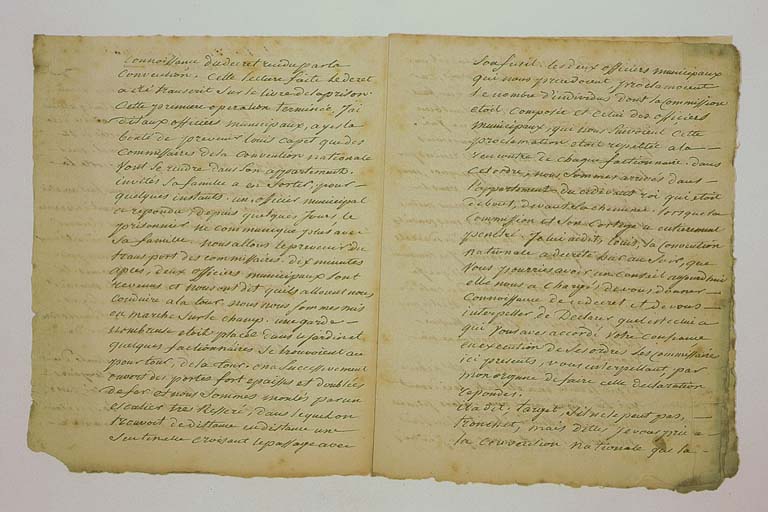 Connoissance du decret rendu par la
Convention. Cette lecture faite Le decret
a été transcrit sur le livre de la prison.
Cette premiere operation terminée, J'ai
dit aux officiers municipaux, ayes la
bonté de prevenir Louis Capet que des
Commissaires de la Convention nationale
vont se rendre dans son appartement.
invités sa famille a en sortir pour
quelques instants. un officier municipal
a repondu; depuis quelques jours le
prisonnier ne communique plus avec
sa famille. nous allons le prevenir du
transport des commissaires. dix minutes
apres, deux officiers municipaux sont
revenus et nous ont dit qu'ils alloient nous
conduire a la tour. nous nous sommes mis
en marche sur le champ. une garde
nombreuse etoit placée dans le jardin et
quelques factionnaires se trouvoient au
pourtour, de la tour. on a successivement
ouvert des portes fort epaisses et doublées
de fer et nous sommes montés par un
escalier tres resserré, dans lequel on
trouvoit de distance en distance une
sentinelle croisant le passage avec
son fusil. les deux officiers municipaux
qui nous precedoient, proclamoient
le nombre d'individus dont la Commission
etoit Composée et celui des officiers
municipaux, qui nous suivoient Cette
proclamation etoit repettée a la
rencontre de chaque factionnaire. dans
cet ordre, nous sommes arrivés dans
l'appartement du cidevant roi qui etoit
debout, devant la cheminée. lorsque la
Commission et son Cortege a entierement
penetré. Je lui ai dit, Louis, la Convention
nationale a decreté hier au soir, que
vous pourries avoir un Conseil aujourd'hui
elle nous a chargés de vous donner
Connoissance de ce decret et de vous
interpeller de Declarer quel est celui a
qui vous aves accordé votre Confiance
en execution de ses ordres les Commissaires
ici presents, vous interpellent par
mon organe de faire cette declaration
repondes;
il a dit, target, s'il ne le peut pas,
tronchet, mais dittes je vous prie a
la convention nationale que la